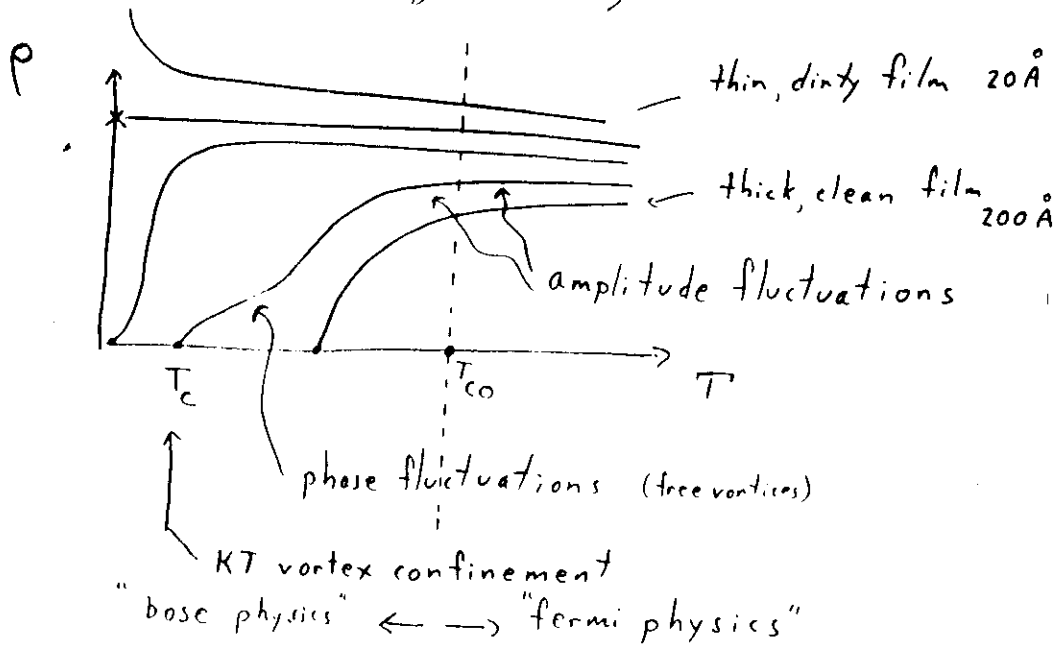 ρ
thin, dirty film 20 Å
thick, clean film 200 Å
amplitude fluctuations
T_c
T_co
T
phase fluctuations (free vortices)
KT vortex confinement
"bose physics" ← → "fermi physics"